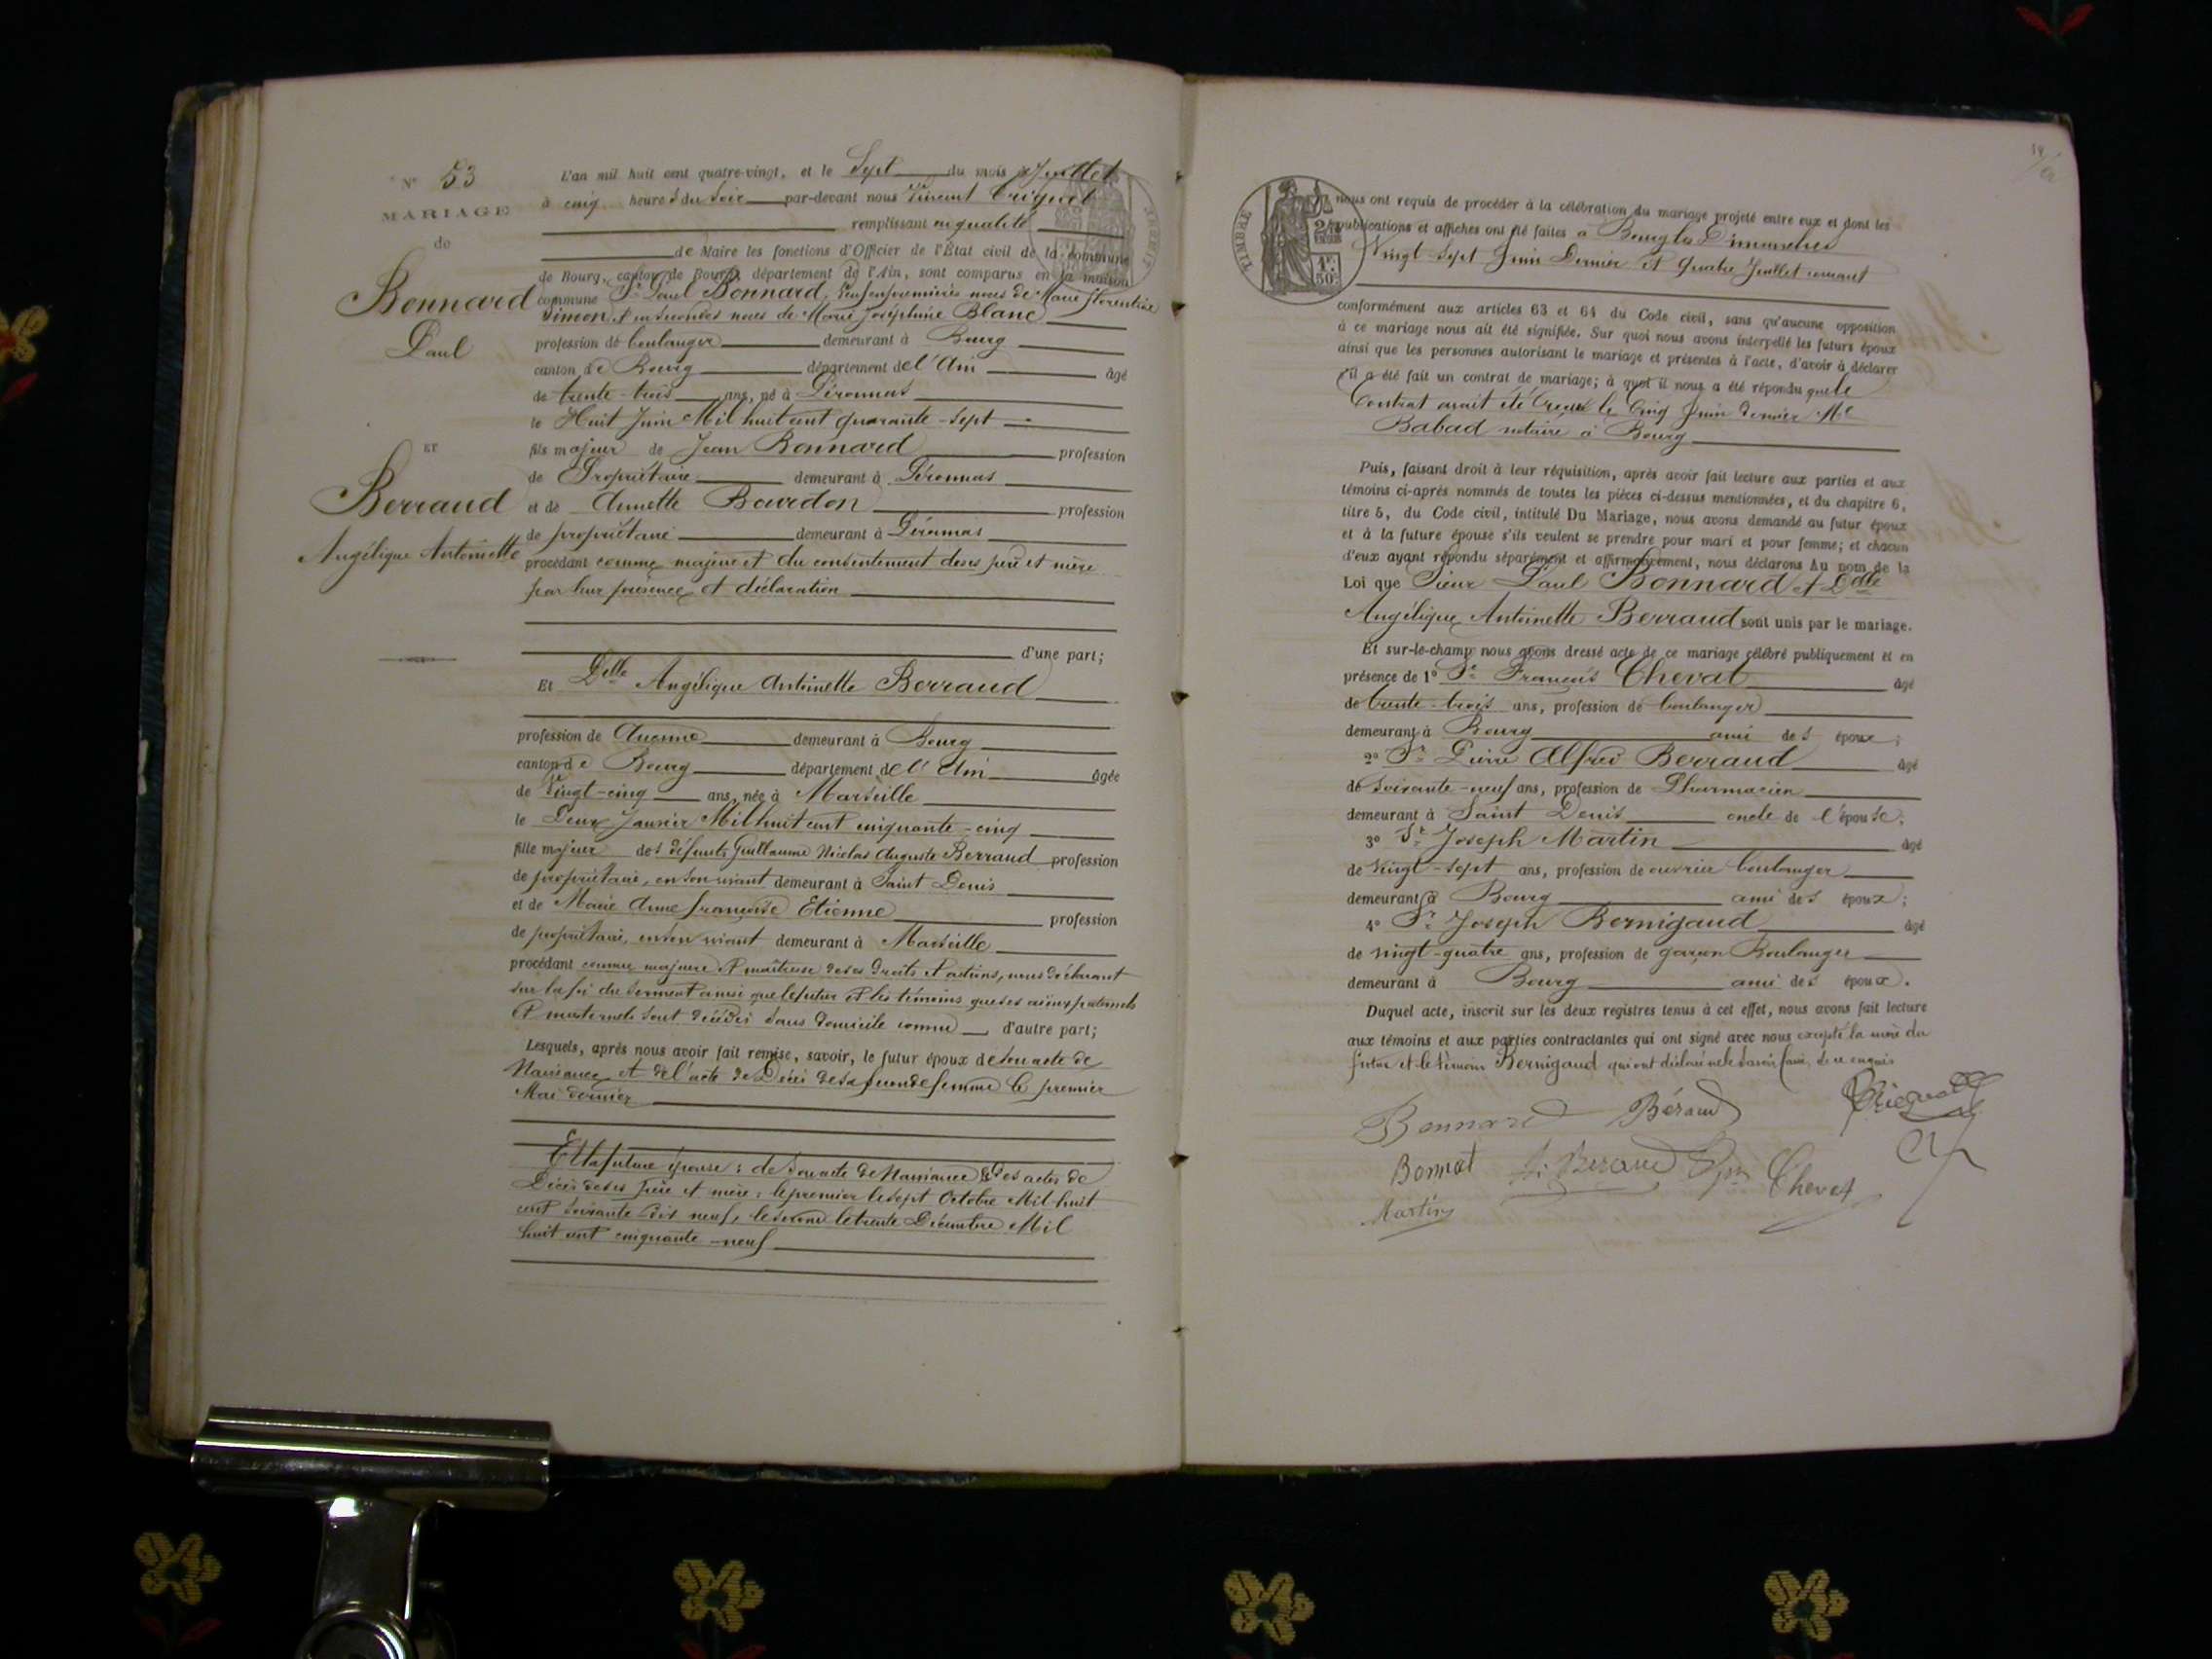 N° 53
MARIAGE
de
Bonnard
Paul
ET
Berraud
Angélique Antoinette
L'an mil huit cent quatre-vingt, et le Sept du mois de Juillet
à cinq heures du soir par-devant nous Vincent
remplissant en qualité
de Maire les fonctions d'Officier de l'État civil de la commune
de Bourg, canton de Bourg, département de l'Ain, sont comparus en la maison
commune Sr Paul Bonnard, veuf en premières noces de Marie florentine
Simon et en secondes noces de Marie Joséphine Blanc
profession de boulanger demeurant à Bourg
canton de Bourg département de l'Ain âgé
de trente-trois ans, né à Péronnas
le Huit Juin Mil huit cent quarante-sept
fils majeur de Jean Bonnard profession
de Propriétaire demeurant à Péronnas
et de Annette Bourdon profession
de propriétaire demeurant à Péronnas
procédant comme majeur et du consentement de ses père et mère
par leur présence et déclaration
d'une part;
Et Delle Angélique Antoinette Berraud
profession de Aucune demeurant à Bourg
canton de Bourg département de l'Ain âgée
de Vingt-cinq ans, née à Marseille
le Deux Janvier Mil huit cent cinquante-cinq
fille majeure des défunts Guillaume Nicolas Auguste Berraud profession
de propriétaire, en son vivant demeurant à Saint Denis
et de Marie Anne françoise Etienne profession
de propriétaire, en son vivant demeurant à Marseille
procédant comme majeure et maîtresse de ses droits et actions, nous déclarant
sur la foi du serment ainsi que le futur et les témoins que ses aïeux paternels
et maternels sont décédés sans domicile connu d'autre part;
Lesquels, après nous avoir fait remise, savoir, le futur époux de son acte de
Naissance et de l'acte de Décès de sa seconde femme le premier
Mai dernier
Et la future épouse: de son acte de Naissance & des actes de
Décès de ses père et mère: le premier le sept Octobre Mil huit
cent soixante dix neuf, le second le trente Décembre Mil
huit cent cinquante-neuf
TIMBRE
1F.
50c
nous ont requis de procéder à la célébration du mariage projeté entre eux et dont les
publications et affiches ont été faites à Bourg les Dimanches
Vingt-sept Juin Dernier et quatre Juillet courant
conformément aux articles 63 et 64 du Code civil, sans qu'aucune opposition
à ce mariage nous ait été signifiée. Sur quoi nous avons interpellé les futurs époux
ainsi que les personnes autorisant le mariage et présentes à l'acte, d'avoir à déclarer
s'il a été fait un contrat de mariage; à quoi il nous a été répondu que le
Contrat avait été reçu le Cinq Juin dernier Me
Babad notaire à Bourg
Puis, faisant droit à leur réquisition, après avoir fait lecture aux parties et aux
témoins ci-après nommés de toutes les pièces ci-dessus mentionnées, et du chapitre 6,
titre 5, du Code civil, intitulé Du Mariage, nous avons demandé au futur époux
et à la future épouse s'ils veulent se prendre pour mari et pour femme; et chacun
d'eux ayant répondu séparément et affirmativement, nous déclarons Au nom de la
Loi que Sieur Paul Bonnard et Delle
Angélique Antoinette Berraud sont unis par le mariage.
Et sur-le-champ nous avons dressé acte de ce mariage célébré publiquement et en
présence de 1° Sr François Cheval âgé
de trente-trois ans, profession de boulanger
demeurant à Bourg ami des époux;
2° Sr Pierre Alfred Berraud âgé
de Soixante-neuf ans, profession de Pharmacien
demeurant à Saint Denis oncle de l'épouse;
3° Sr Joseph Martin âgé
de vingt-sept ans, profession de ouvrier boulanger
demeurant à Bourg ami des époux;
4° Sr Joseph Bernigaud âgé
de vingt-quatre ans, profession de garçon Boulanger
demeurant à Bourg ami des époux.
Duquel acte, inscrit sur les deux registres tenus à cet effet, nous avons fait lecture
aux témoins et aux parties contractantes qui ont signé avec nous excepté la mère du
futur et le témoin Bernigaud qui ont déclaré ne le savoir faire, de ce enquis
Bonnard Béraud
Bonnat Beraud Cheval
Martin